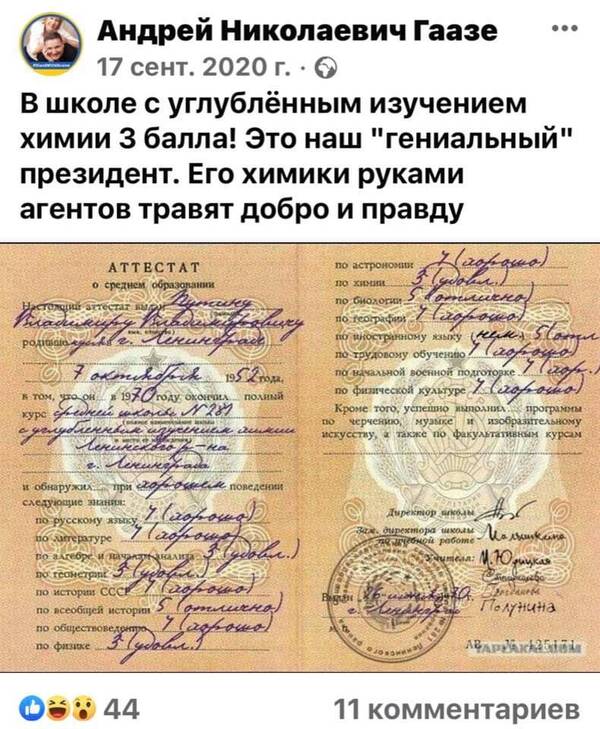 Андрей Николаевич Гаазе
17 сент. 2020 г.
В школе с углублённым изучением
химии 3 балла! Это наш "гениальный"
президент. Его химики руками
агентов травят добро и правду
АТТЕСТАТ
о среднем образовании
Настоящий аттестат выдан Путину
Владимиру Владимировичу
родившемуся в г. Ленинграде
7 октября 1952 года,
в том, что он в 1970 году окончил полный
курс средней школы № 281
с углубленным изучением химии
Ленинского р-на
г. Ленинграда
и обнаружил при хорошем поведении
следующие знания:
по русскому языку 4 (хорошо)
по литературе 4 (хорошо)
по алгебре и началам анализа 3 (удовл.)
по геометрии 3 (удовл.)
по истории СССР 4 (хорошо)
по всеобщей истории 5 (отлично)
по обществоведению 4 (хорошо)
по физике 3 (удовл.)
по астрономии 4 (хорошо)
по химии 3 (удовл.)
по биологии 5 (отлично)
по географии 4 (хорошо)
по иностранному языку (нем.) 5 (отл
по трудовому обучению 4 (хорошо)
по начальной военной подготовке 4 (хор.)
по физической культуре 4 (хорошо)
Кроме того, успешно выполнил программы
по черчению, музыке и изобразительному
искусству, а также по факультативным курсам
Директор школы
Зам. директора школы
по учебной работе
Учителя:
Полунина
Выдан
г. Ленинград
YAPLAKAL.COM
44
11 комментариев